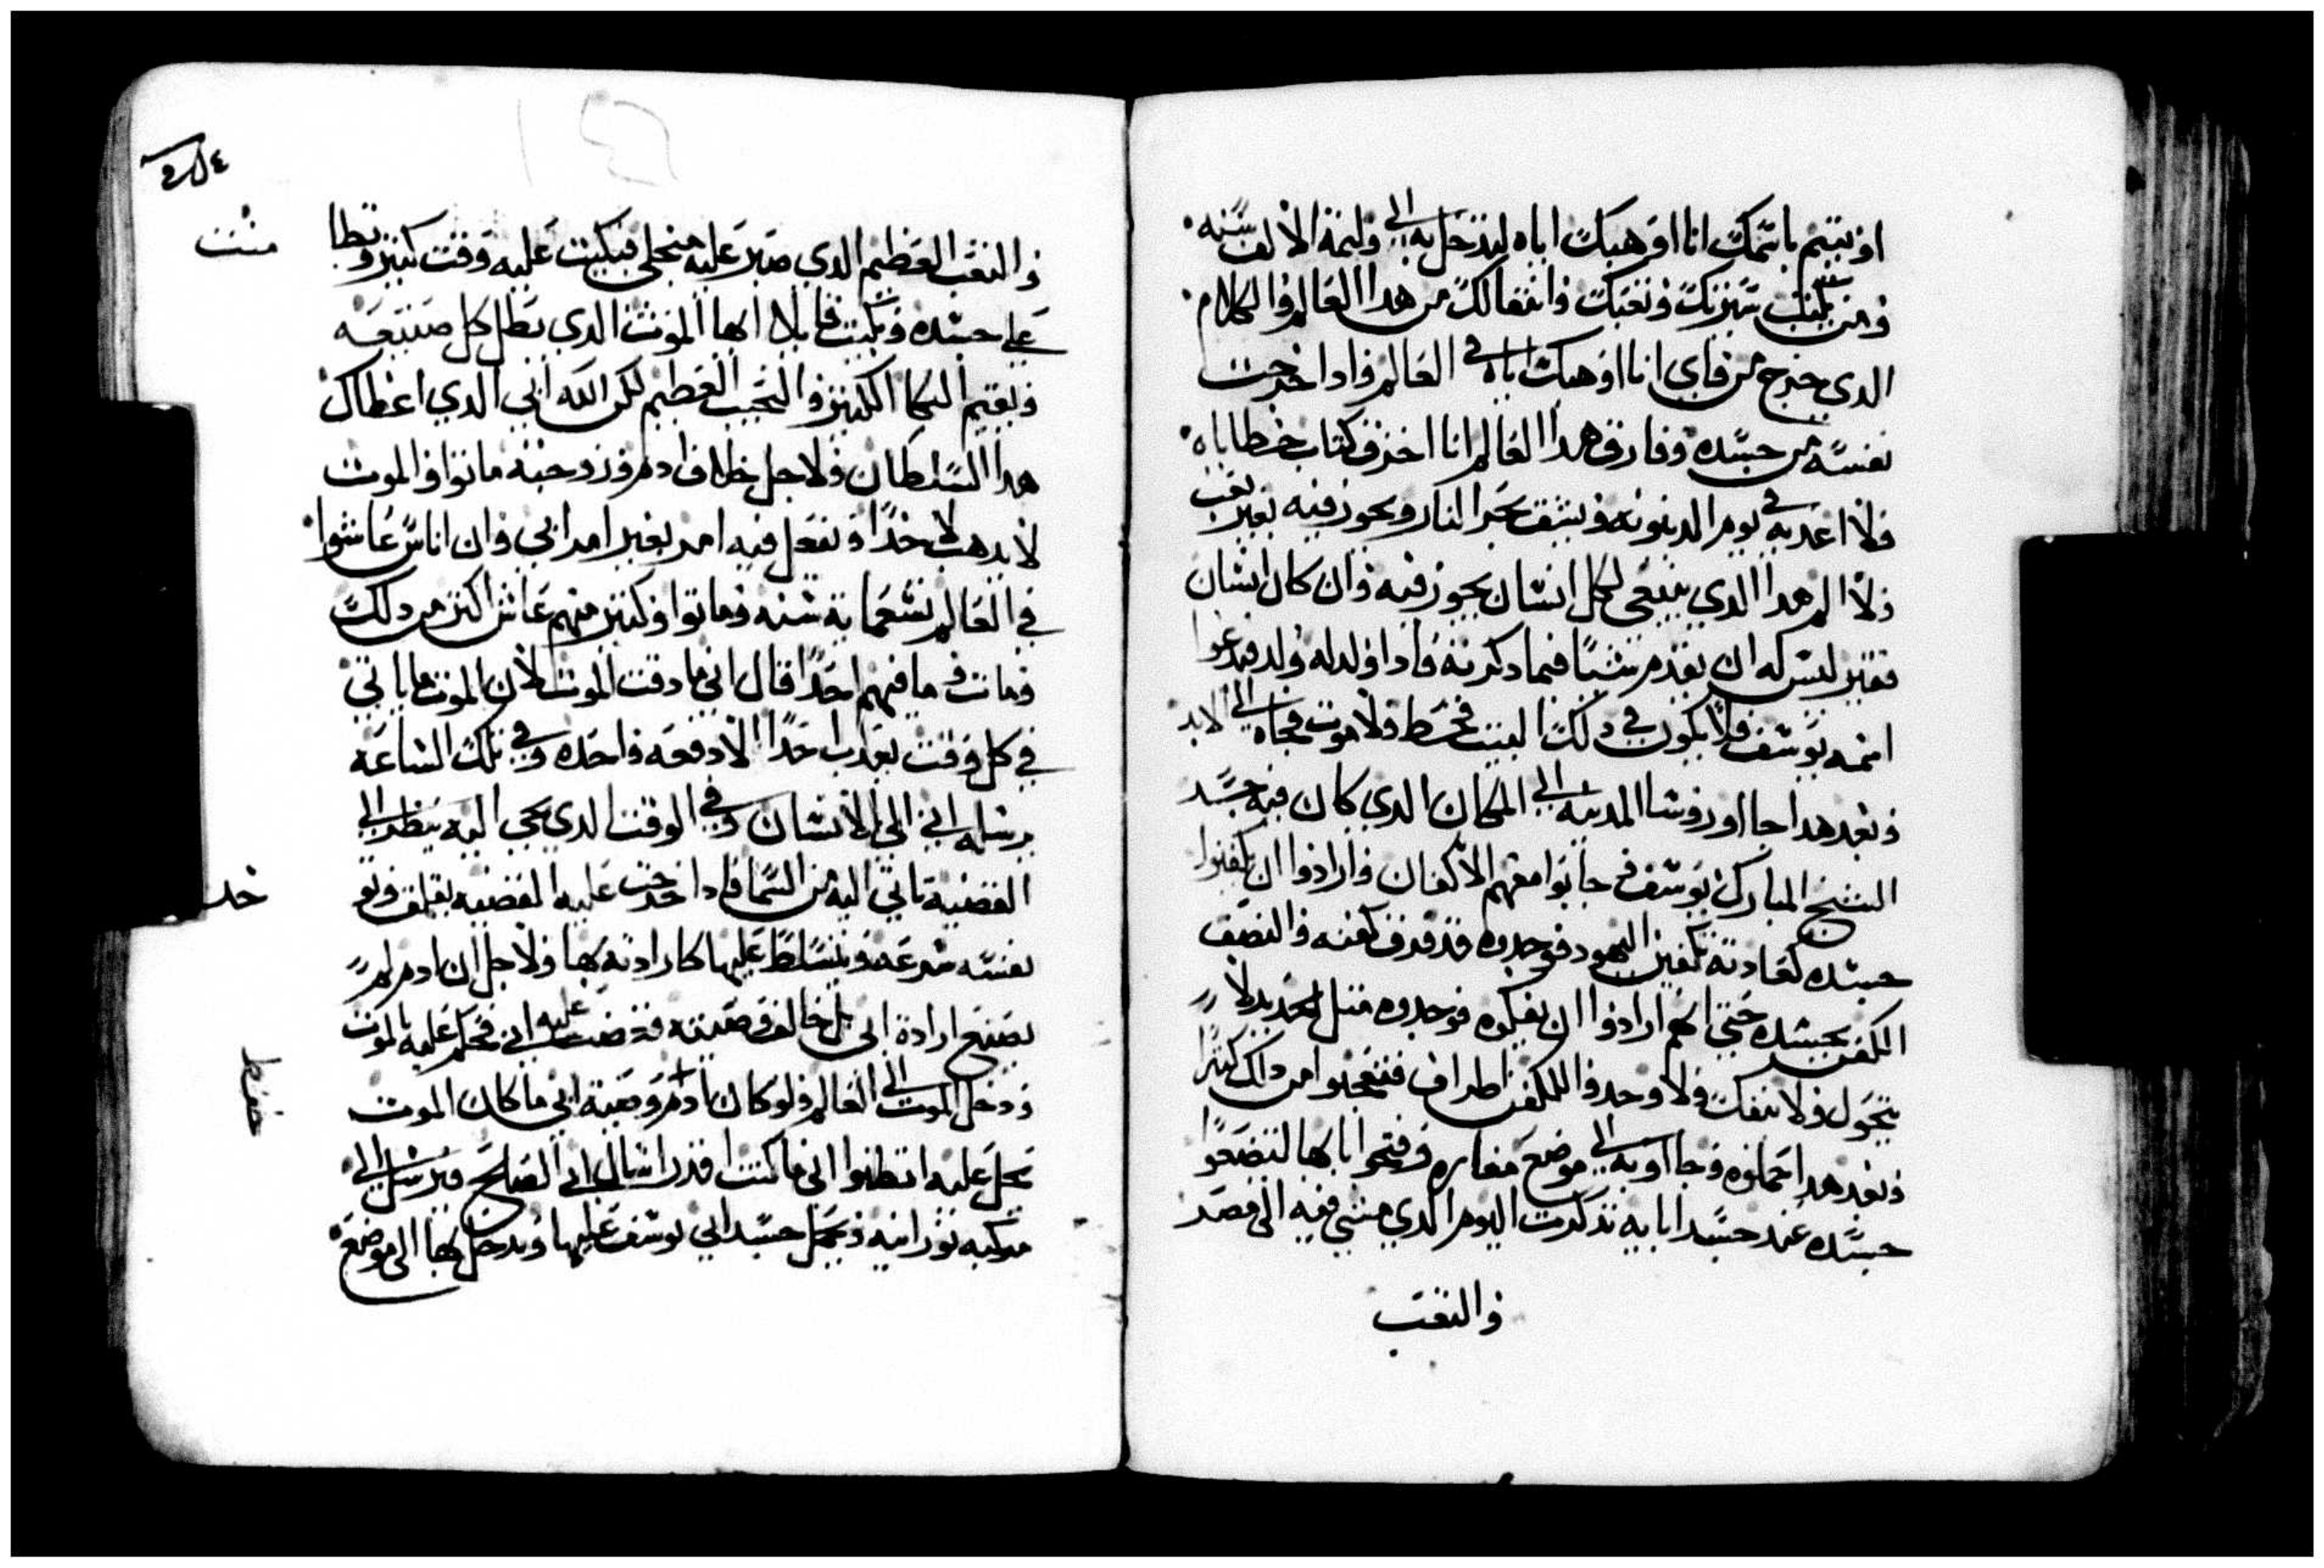 او يتيم باسمك انا اوهبك اياه ليدخل به الى وليمة الالف سنه
ومن يكتب سيرتك وتعبك وانتقالك من هدا العالم والكلام
الدي خرج من فاي انا اوهبك اياه في العالم وادا خرجت
نفسه من جسده وفارق هدا العالم انا احرق كتاب خطاياه
ولا اعدبه في يوم الدينونه ويشق بحر النار ويجوز فيه بغير تعب
ولا الم هدا الدي ينبغي لكل انسان يجوز فيه وان كان انسان
فقير ليس له ان يقدم شيا فيما دكرته فادا ولد له ولد فيدعوا
اسمه يوسف فلا يكون في دلك البيت قحط ولا موت فجاه الى الابد
وبعد هدا جااو روسا المدينه الى المكان الدي كان فيه جسد
الشيخ المبارك يوسف جابوا معهم الاكفان وارادوا ان يكفنوا
جسده كعادة تكفين اليهود فوجدوه قد كفنه والتصق
الكفن بجسده حتى انهم ارادوا ان يفكوه فوجدوه مثل الحديد لا
يتحول ولا ينفك ولا وجدوا للكفن اطراف فتعجبوا من دالك كثيرا
وبعد هدا حملوه وجااو به الى موضع مغاره وفتحوا بابها ليضعوا
جسده عند جسد ابايه تدكرت اليوم الدي مشي فيه الى مصر
والتعب
والتعب العظيم الدي صبر عليه من اجلي فبكيت عليه وقت كبير
على جسده وبكيت قايلا ايها الموت الدي بطل كل صنيعه
ويقيم البكا الكبير والنحيب العظيم لكن الله ابي الدي اعطاك
هدا السلطان ولاجل خلاف ادم وزوجته ماتوا والموت
لا يدهب لاحدا ويفعل فيه امر بغير امر ابي وان اناس عاشوا
في العالم تسعماية سنه وماتوا وكثير منهم عاش اكثر من دلك
ومات وما فيهم احدا قال اني ما دقت الموت لان الموت ما ياتي
في كل وقت يعدب احدا الا دفعه واحده وفي تلك الساعه
يرسله ابي الى الانسان وفي الوقت الدي يجي اليه ينظر الى
القضية تاتي اليه من السما فادا خرجت عليه القضيه يقلق
نفسه بسرعه ويتسلط عليها كارادته بها ولاجل ان ادم لم
يصنع ارادة ابي بل خالف وصيته عليه ابي فحكم عليه بالموت
ودخل الموت الى العالم ولو كان ادم وصية ابي ما كان الموت
يحل عليه اتظنوا اني ما كنت اقدر اسال ابي الصالح فيرسل الى
مركبه نورانيه ويحمل جسد ابي يوسف عليها ويدخل بها الى موضع